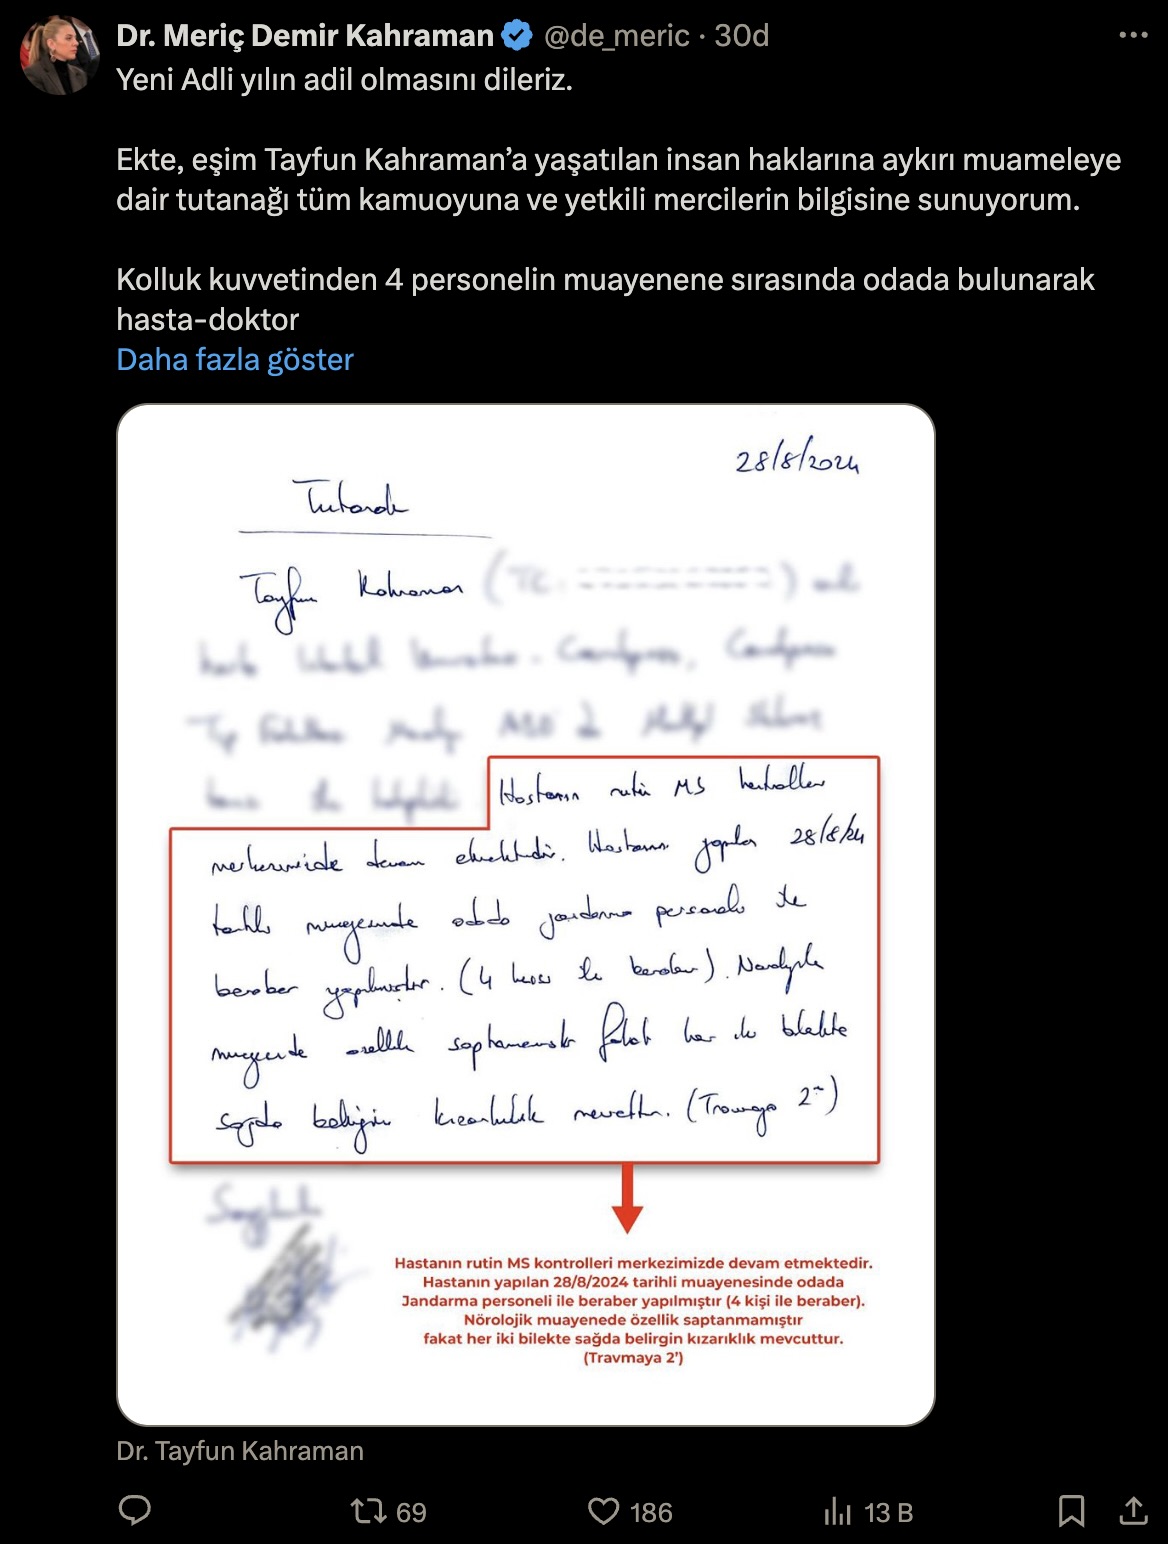 Dr. Meriç Demir Kahraman @de_meric · 30d
Yeni Adli yılın adil olmasını dileriz.
Ekte, eşim Tayfun Kahraman’a yaşatılan insan haklarına aykırı muameleye
dair tutanağı tüm kamuoyuna ve yetkili mercilerin bilgisine sunuyorum.
Kolluk kuvvetinden 4 personelin muayenene sırasında odada bulunarak
hasta-doktor
Daha fazla göster
28/8/2024
Tutanak
Tayfun Kahraman
Hastanın rutin MS kontrolleri
merkezimizde devam etmektedir. Hastanın yapılan 28/8/24
tarihli muayenesinde odada jandarma personeli ile
beraber yapılmıştır. (4 kişi ile beraber). Nörolojik
muayenede özellik saptanmamıştır fakat her iki bilekte
sağda belirgin kızarıklık mevcuttur. (Travmaya 2~)
Hastanın rutin MS kontrolleri merkezimizde devam etmektedir.
Hastanın yapılan 28/8/2024 tarihli muayenesinde odada
Jandarma personeli ile beraber yapılmıştır (4 kişi ile beraber).
Nörolojik muayenede özellik saptanmamıştır
fakat her iki bilekte sağda belirgin kızarıklık mevcuttur.
(Travmaya 2’)
Dr. Tayfun Kahraman
69 186 13 B